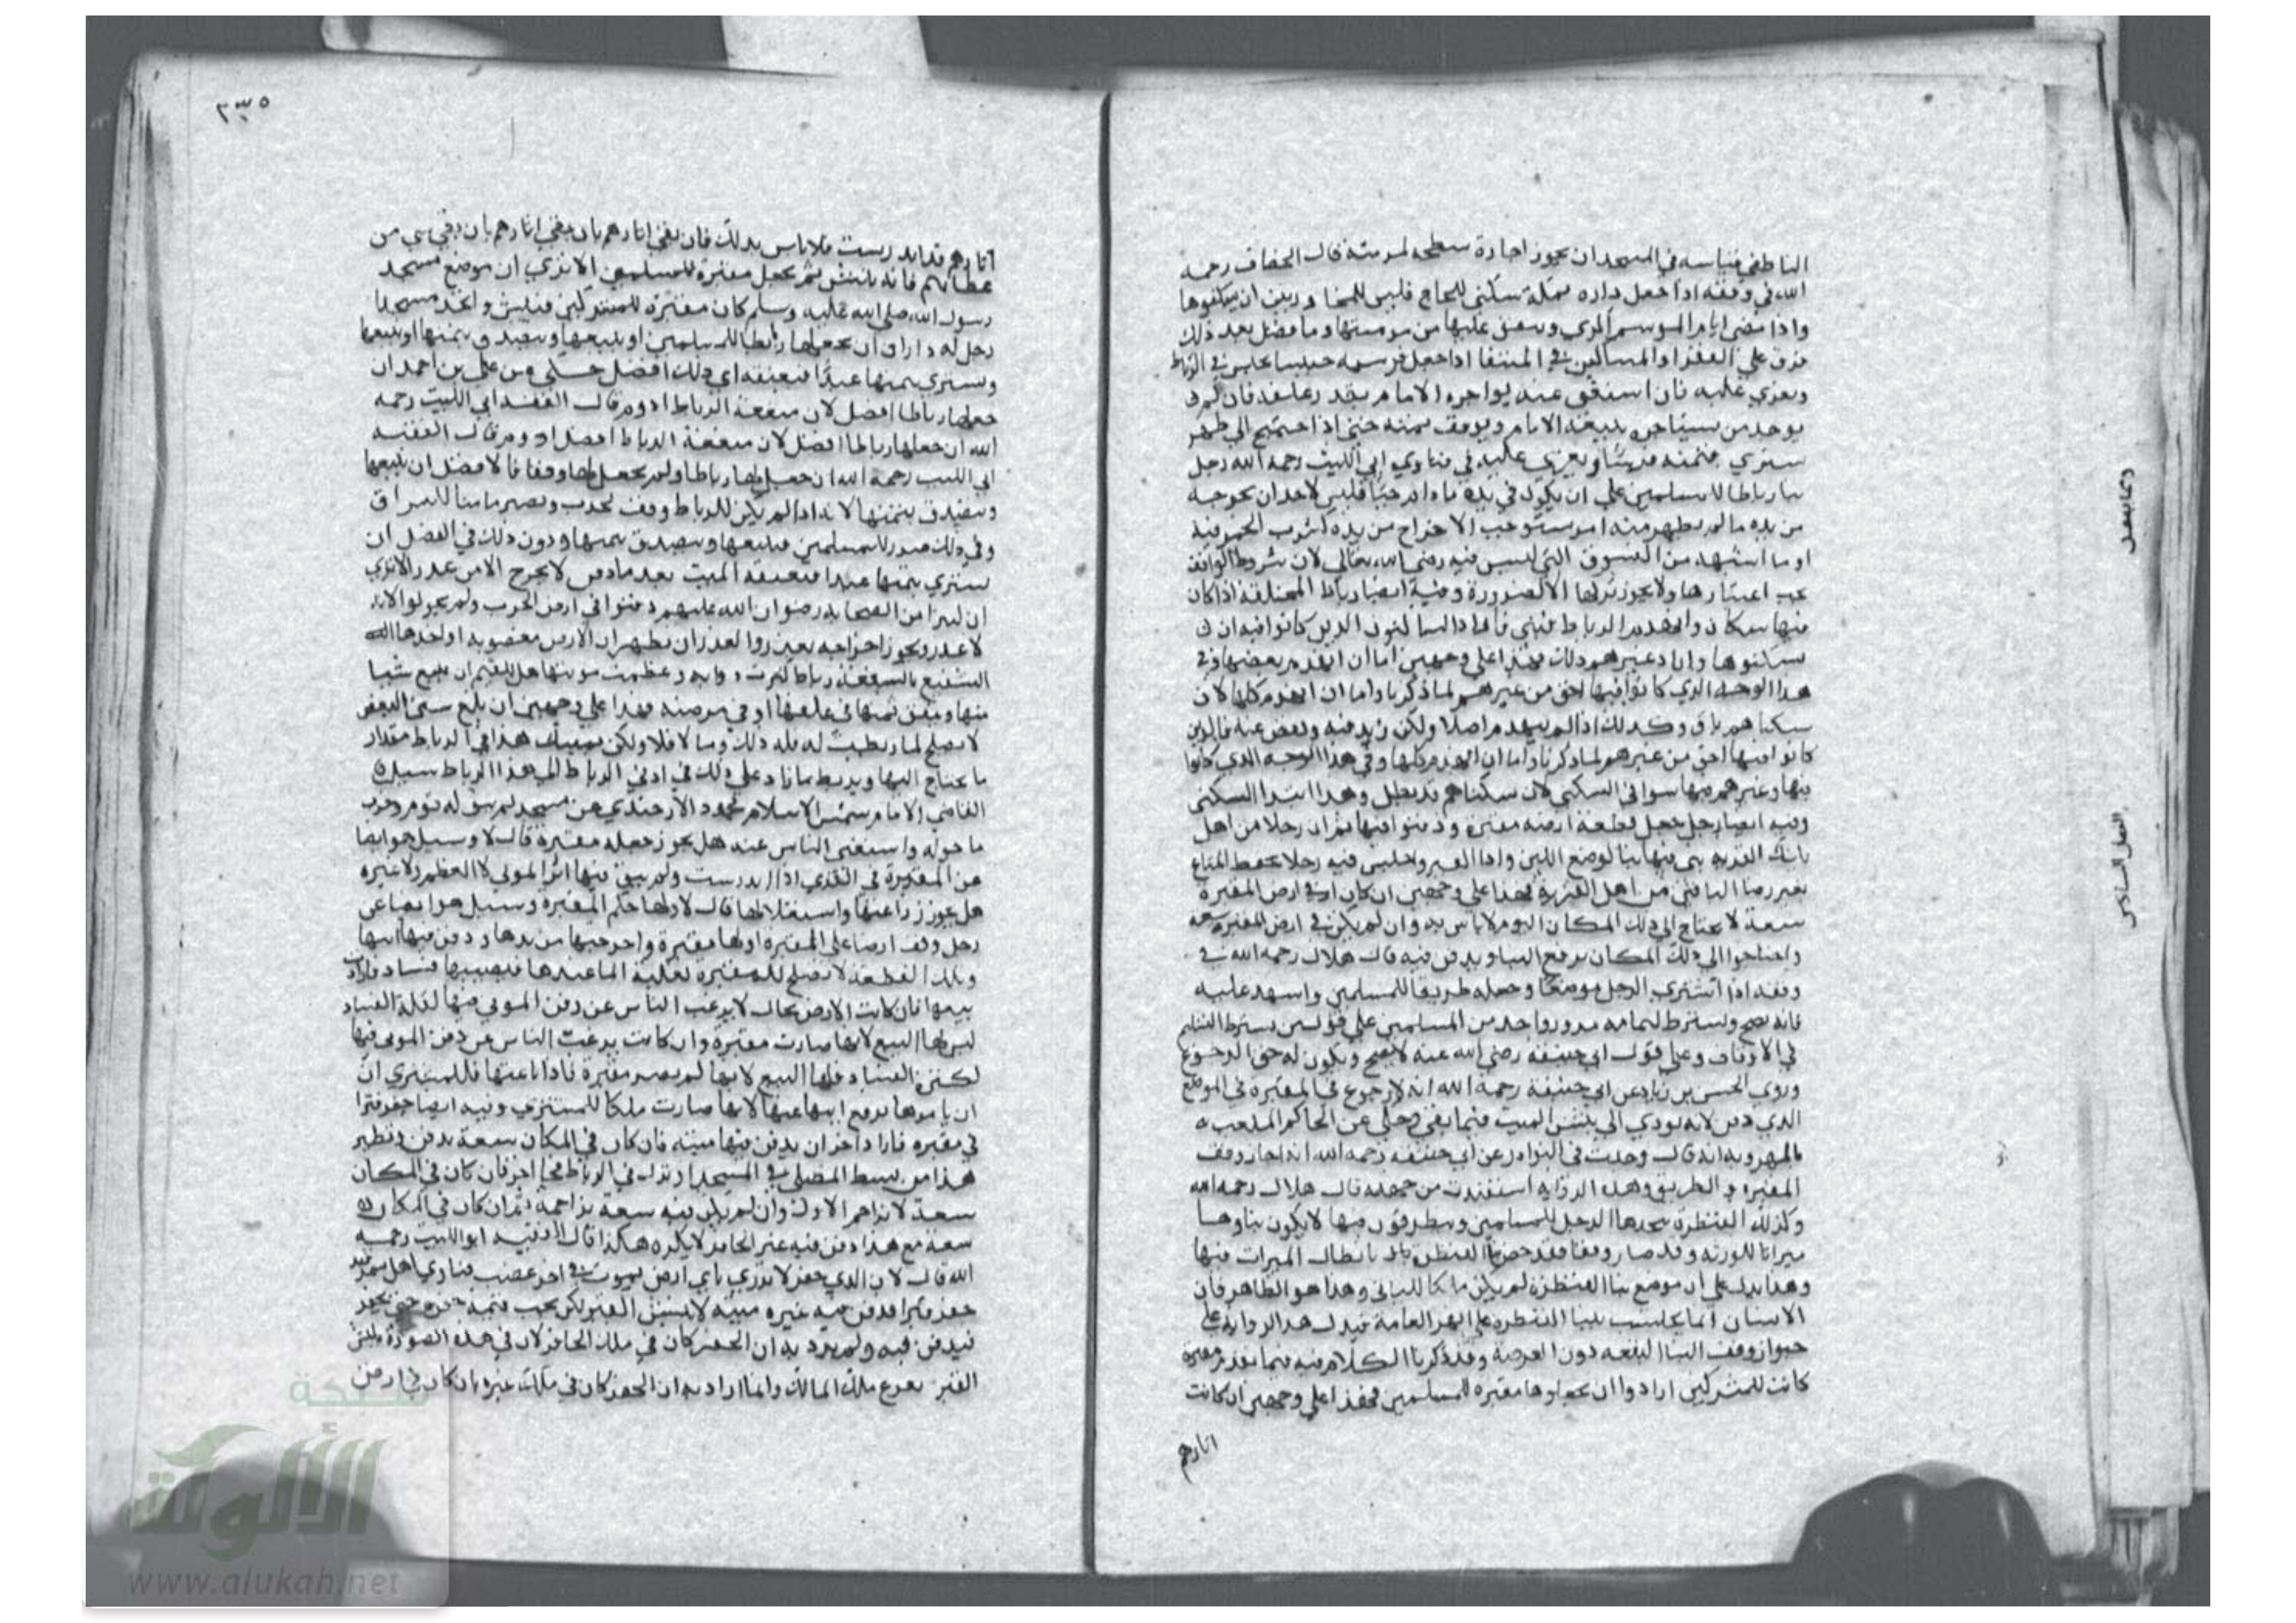 الناطفي فقياسه في المسجد ان يجوز اجارة سطحه لمرمته قال الخصاف رحمة
الله في وقفه اذا جعل داره بمكة سكنى للحاج فليس للمجا ورين ان يسكنوها
واذا مضى ايام الموسم اكرى وينفق عليها من مرمتها وما فضل بعد ذلك
فرق علي الفقرا والمساكين في المنتقا اذا جعل فرسه حبيسا في الرباط
ويغزي عليه فان استغنى عنه يواجره الامام بقدر علفه فان لم
يوجد من يستاجره يبيعه الامام ويوقف ثمنه حتى اذا احتيج الي ظهر
يشتري بثمنه فرسا ويغزى عليه في فتاوي ابي الليث رحمه الله رجل
بنا رباطا للمسلمين علي ان يكون في يده ما دام حيا فليس لاحد ان يخرجه
من يده ما لم يظهر منه امر يستوجب الاخراج من يده كشرب الخمر فيه
او ما اشبهه من الفسوق التي ليس فيه رضى الله تعالى لان شروط الواقف
يجب اعتبارها ولا يجوز تركها الا لضرورة وفيه ايضا رباط المختلفة اذا كان
فيها سكان وانهدم الرباط فبني فاراد الساكنون الذين كانوا فيه ان
يسكنوها واراد غيرهم ذلك فهذا على وجهين اما ان انهدم بعضها وفي
هذا الوجه الذي كانوا فيها احق من غيرهم لما ذكرنا واما ان انهدم كلها لان
سكناهم باق وكذلك اذا لم ينهدم اصلا ولكن زيد فيه ونقص عنه فالذين
كانوا فيها احق من غيرهم لما ذكرنا واما ان انهدم كلها وفي هذا الوجه الذي كانوا
فيها وغيرهم فيها سوا في السكنى لان سكناهم قد بطل وهذا ابتدا السكنى
وفيه ايضا رجل جعل قطعة ارضه مقبرة ودفنوا فيها ثم ان رجلا من اهل
تلك القرية بنى فيها بنا لوضع اللبن واداة القبر واجلس فيه رجلا يحفظ المتاع
بغير رضا الباقين من اهل القرية فهذا على وجهين ان كان في ارض المقبرة
سعة لا يحتاج الي ذلك المكان اليوم لا باس به وان لم يكن في ارض المقبرة سعة
واحتاجوا الي ذلك المكان يرفع البنا ويدفن فيه قال هلال رحمه الله في
وقفه اذا اشترى الرجل موضعا وجعله طريقا للمسلمين واشهد عليه
فانه يصح ويشترط لتمامه مرور واحد من المسلمين علي قول من يشترط التسليم
في الاوقاف وعلى قول ابي حنيفة رضي الله عنه لا يصح ويكون له حق الرجوع
وروي الحسن بن زياد عن ابي حنيفة رحمة الله انه لا رجوع في المقبرة في الموضع
الذي دفن لانه يودي الى نبش الميت فيما بقي وحكي عن الحاكم الملقب
بالمهرويه انه قال وجدت في النوادر عن ابي حنيفة رحمه الله انه اجاز وقف
المقبرة والطريق وهذه الرواية استفيدت من جهته قال هلال رحمه الله
وكذلك القنطرة يتخذها الرجل للمسلمين ويتطرقون فيها لا يكون بناوها
ميراثا للورثة وقد صار وقفا فقد خص بنا القنطرة بابطال الميراث فيها
وهذا يدل على ان موضع بنا القنطرة لم يكن ملكا للباني وهذا هو الظاهر فان
الانسان انما يحتسب ببنا القنطرة على النهر العامة فيدل هذا الرواية على
جواز وقف البنا البقعة دون العرصة وقد ذكرنا الكلام فيه فيما تقدم مقبرة
كانت للمشركين ارادوا ان يجعلوها مقبرة للمسلمين فهذا علي وجهين ان كانت
اثارهم
وتما يتصل
الفصل السادس
٢٣٥
اثارهم قد اندرست فلا باس بذلك فان بقي اثارهم بان بقي اثارهم بان بقي شي من
عظامهم فانه ينبش ثم يجعل مقبرة للمسلمين الا تري ان موضع مسجد
رسول الله صلى الله عليه وسلم كان مقبرة للمشركين فنبش واتخذ مسجدا
رجل له دار اراد ان يجعلها رباطا للمسلمين او يبيعها ويتصدق بثمنها او يبيعها
ويشتري بثمنها عبدا فيعتقه اي ذلك افضل حكي عن علي بن احمد ان
جعلها رباطا افضل لان منفعة الرباط ادوم قال الفقيه ابي الليث رحمه
الله ان جعلها رباطا افضل لان منفعة الرباط افضل ادوم قال الفقيه
ابي الليث رحمة الله ان جعل لها رباطا ولم يجعل لها وقفا فالافضل ان يبيعها
ويتصدق بثمنها لانه اذا لم يكن للرباط وقف يخرب ويصير مامنا للسراق
وفي ذلك ضرر للمسلمين فيبيعها ويتصدق بثمنها ودون ذلك في الفضل ان
يشتري بثمنها عبدا فيعتقه الميت بعد ما دفن لا يخرج الا من عذر الا تري
ان كثيرا من الصحابة رضوان الله عليهم دفنوا في ارض الحرب ولم يحولوا لانه
لا عذر ويجوز اخراجه بعذر والعذر ان يظهر ان الارض مغصوبة او اخذها
الشفيع بالشفعة رباط كثرت دوابه وعظمت مونتها هل للقيم ان يبيع شيا
منها وينفق ثمنها في علفها او في مرمته فهذا علي وجهين ان بلغ سن البعض
لا يصلح لما ربطت له فله ذلك وما لا فلا ولكن يمسك هذا في الرباط مقدار
ما يحتاج اليها ويربط ما زاد على ذلك في ادنى الرباط الى هذا الرباط سيل
القاضي الامام شمس الاسلام محمود الاوزجندي عن مسجد لم يبق له قوم وخرب
ما حوله واستغنى الناس عنه هل يجوز جعله مقبرة قال لا وسيل هو ايضا
عن المقبرة في القرى اذا اندرست ولم يبق فيها اثر الموتى لا العظم ولا غيره
هل يجوز زراعتها واستغلالها قال لا ولها حكم المقبرة وسيل هو ايضا عن
رجل وقف ارضا على المقبرة او لها مقبرة واخرجها من يدها ودفن فيها ابنها
وتلك القطعة لا تصلح للمقبرة لغلبة الما عندها فيصيبها فساد فارادت
بيعها فان كانت الارض بحال لا يرغب الناس عن دفن الموتى فيها لقلة الفساد
ليس لها البيع لانها صارت مقبرة وان كانت يرغب الناس عن دفن الموتى فيها
لكثرة الفساد فلها البيع لانها لم يصر مقبرة فاذا باعتها فللمشتري ان
ان يامرها برفع ابنها عنها لانها صارت ملكا للمشتري وفيه ايضا حفر قبرا
في مقبرة فاراد اخر ان يدفن فيها ميته فان كان في المكان سعة يدفن ونظير
هذا من بسط المصلى في المسجد او نزل في الرباط فجا اخر فان كان في المكان
سعة لا يزاحم الاول وان لم يكن فيه سعة يزاحمه ثم ان كان في المكان
سعة مع هذا دفن فيه غير الحافر لا يكره هكذا قال الفقيه ابو الليث رحمه
الله قال لان الذي حفر لا يدري باي ارض يموت في اخر غصب فتاوي اهل سمرقند
حفر قبرا فدفن فيه غيره ميته لا ينبش القبر لكن يجب قيمة حفره حتى يحفر
فيدفن فيه ولم يرد به ان الحفر كان في ملك الحافر لان في هذه الصورة ينبش
القبر يفرغ ملك المالك وانما اراد به ان الحفر كان في ملك غيره بان كان في ارض
شبكة
الألوكة
www.alukah.net